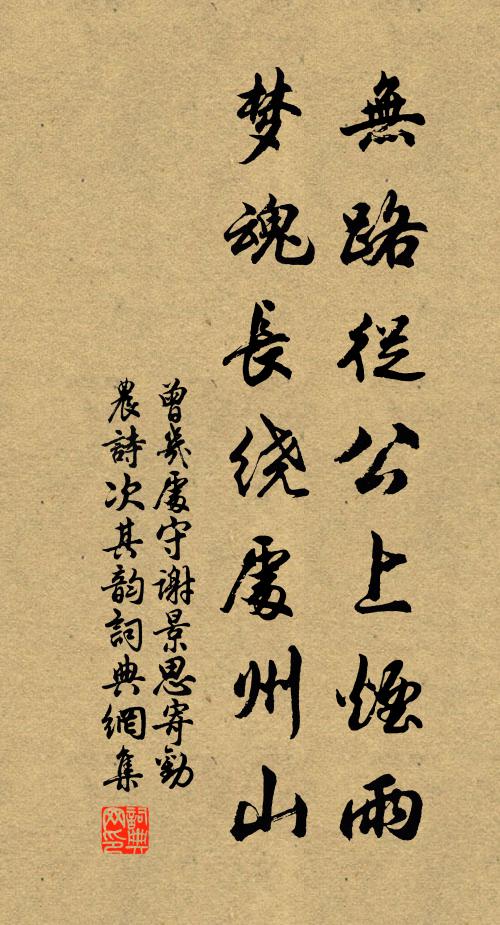 無路從公上煙雨
梦魂長绕處州山
曾幾處守谢景思寄勸
農詩次其韵詞典網集
詞典网印